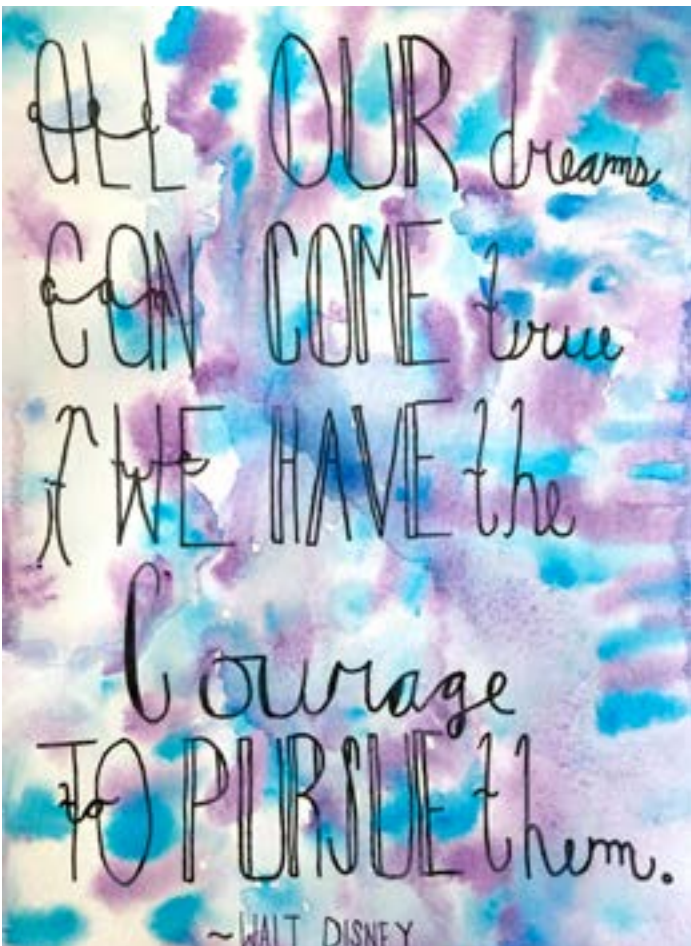 ALL OUR dreams
CAN COME true
if WE HAVE the
Courage
TO PURSUE them.
~WALT DISNEY